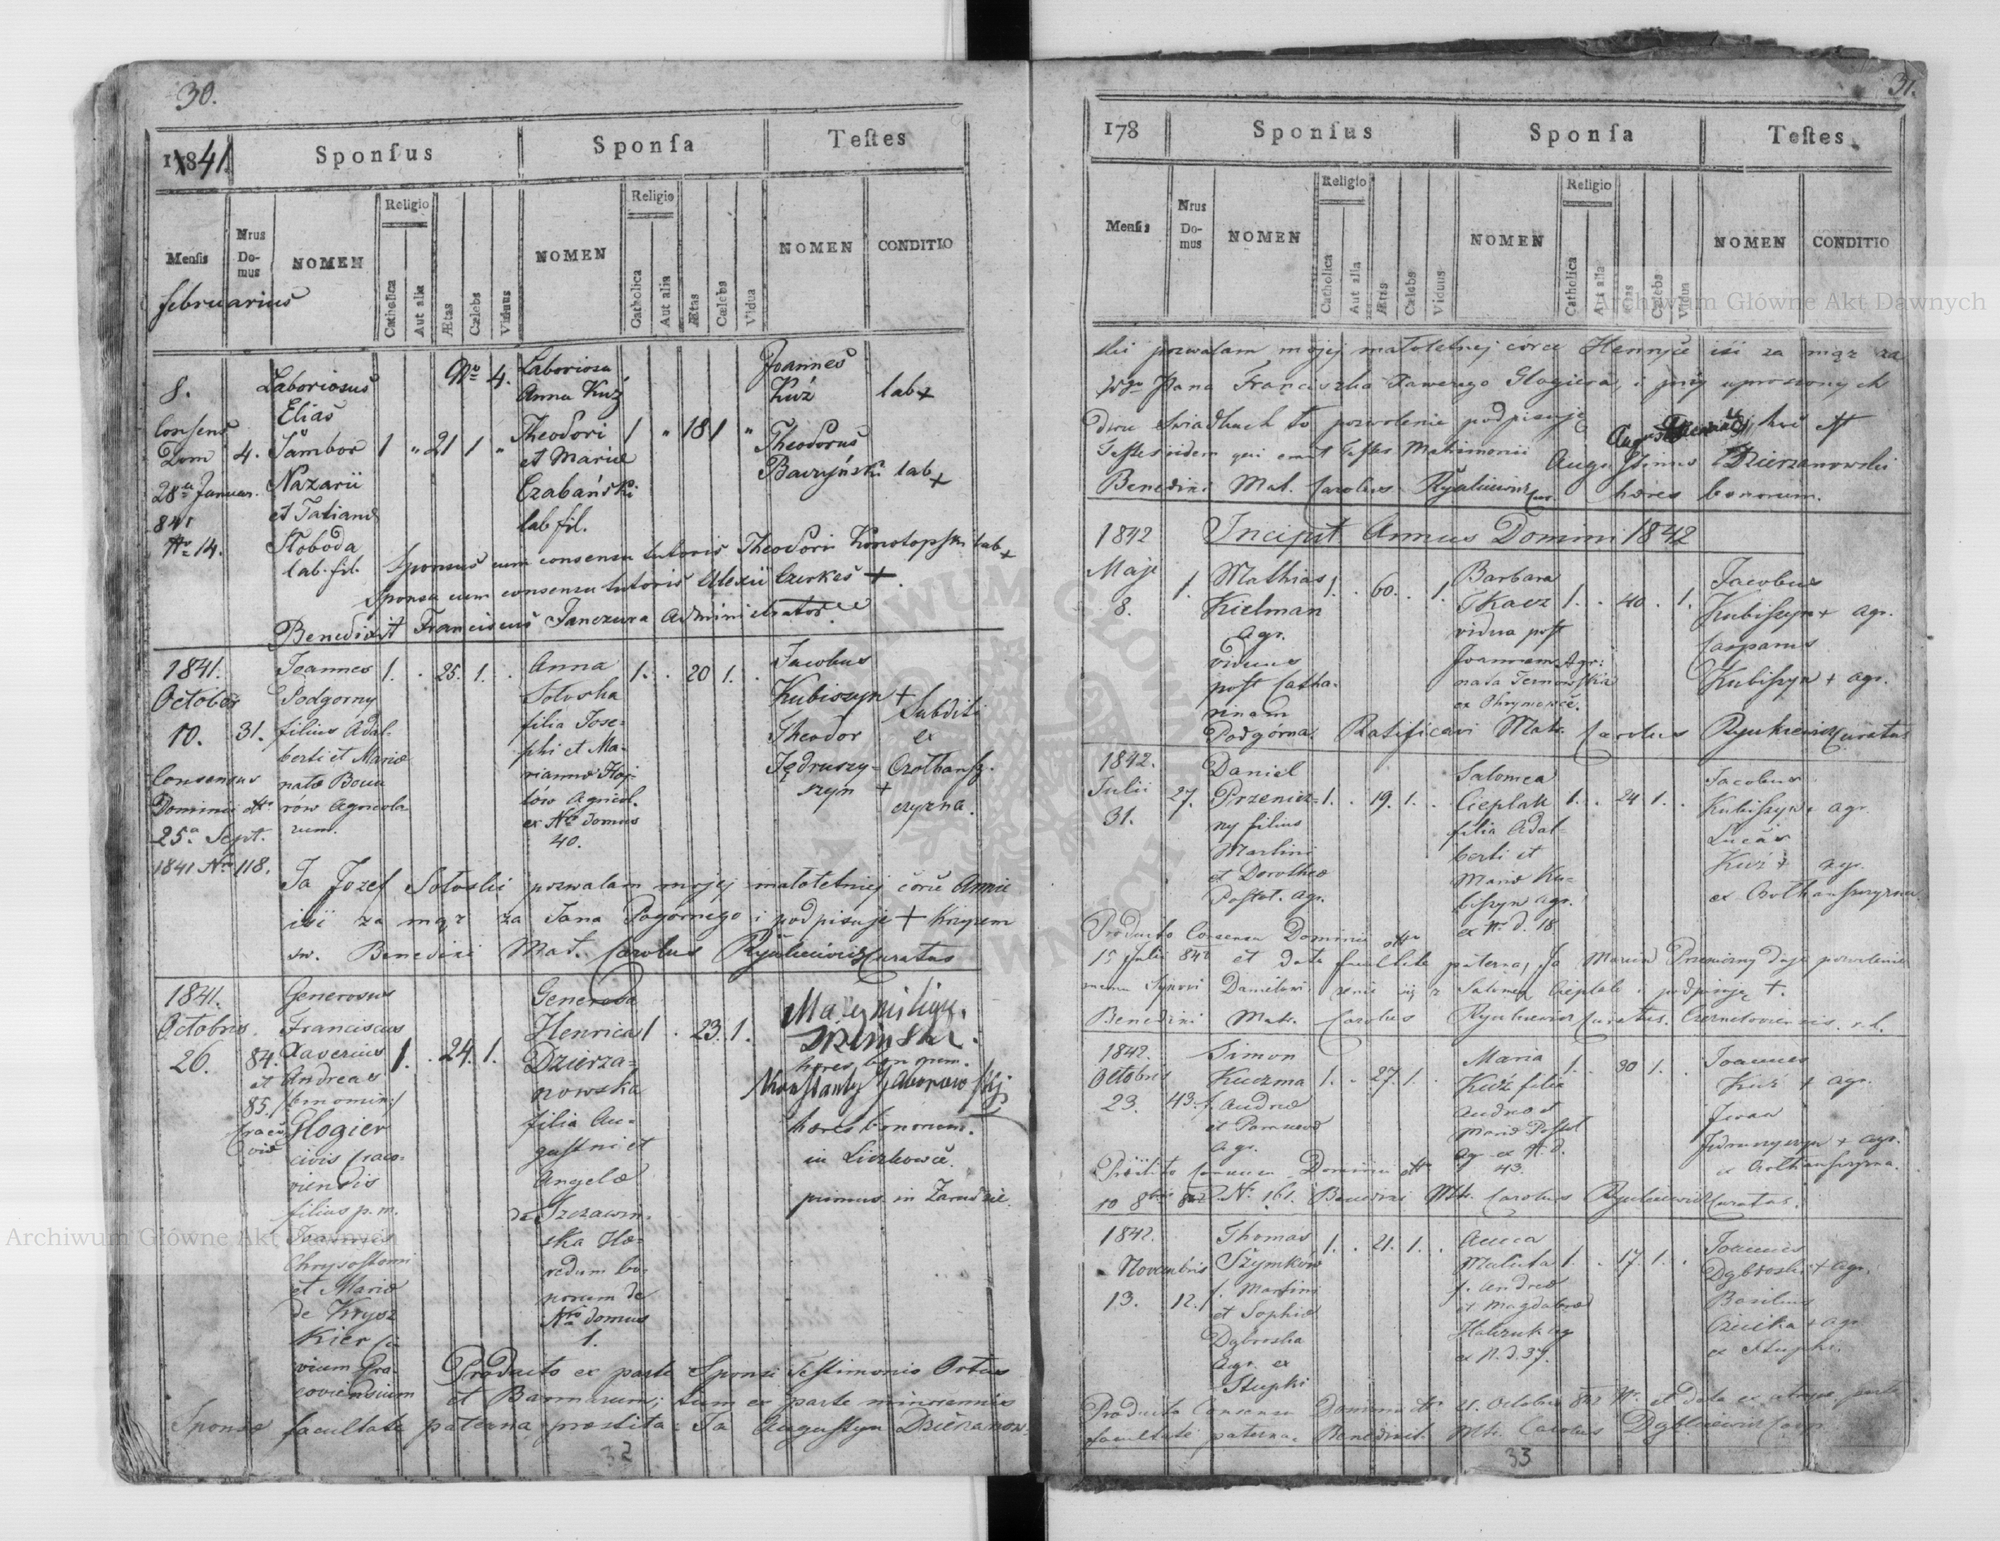 30.
1841.
Sponsus
Sponsa
Testes
Mensis
Nrus Domus
NOMEN
Religio
Catholica
Aut alia
Ætas
Cœlebs
Viduus
NOMEN
Religio
Catholica
Aut alia
Ætas
Cœlebs
Vidua
NOMEN
CONDITIO
februarius
8.
Consens
Dom
28a Januar.
841
Nr 14.
4.
Laboriosus
Elias
Sambor
Nazarii
et Tatianæ
Słoboda
lab. fil.
1 " 21 1 "
Nr 4.
Laboriosa
Anna Kuź
Theodori
et Mariæ
Czabański
lab fil.
1 " 18 1 "
Joannes
Kuź
lab +
Theodorus
Baczyński lab +
Sponsus cum consensu tutoris Theodori Konotopski lab +
Sponsa cum consensu tutoris Alexii Czerkes +.
Benedixit Franciscus Janczura Administrator
1841.
Octobr
10.
Consensus
Dominii
25a Sept.
1841 Nro 118.
31.
Joannes
Podgorny
filius Adal-
berti et Mariæ
natæ
Agricola-
rum.
1. . 25. 1. .
Anna
Sołoska
filia Jose-
phi et Ma-
riannæ
Agricol.
ex Nro Domus
40.
1. . 20 1. .
Jacobus
Kubiszyn +
Theodor
Jędruszy-
szyn +
Subditi
ex
Czołhansz-
czyzna.
Ja Jozef Sołoski pozwalam mojej małoletniej córce Annie
iść za mąż za Jana Pogornego i podpisuje + krzyżem
św. Benedixi Mat. Carolus Ryukiewicz Curatus
1841.
Octobris
26.
84.
et
85.
Generosus
Franciscus
Xaverius
Andreas
binomin:/
Glogier
civis Craco-
viensis
filius p. m.
Joannis
Chrysostomi
et Mariæ
de Krysz
Kier Ci-
vium Cra-
coviensium
1. . 24. 1.
Generosa
Henrica
Dzierza-
nowska
filia Au-
gustini et
Angelæ
de Szczawin-
ska Hæ-
redum bo-
norum de
Nro domus
1.
1 . 23. 1.
hæres bonorum.
hæres bonorum.
in Liczkowce.
primus in Zarudzie.
Producto ex parte Sponsi Testimonio Ortus
et Bannorum; tum ex parte minorennis
Sponsæ facultate paterna præstita: Ja Augustyn Dzierzanow-
32
31.
178
Sponsus
Sponsa
Testes
Mensis
Nrus Domus
NOMEN
Religio
Catholica
Aut alia
Ætas
Cœlebs
Viduus
NOMEN
Religio
Catholica
Aut alia
Ætas
Cœlebs
Vidua
NOMEN
CONDITIO
ski pozwalam mojej małoletnej córce Henryce iść za mąż za
Pana Franciszka Xawerego Glogiera, i przy uproszonych
dwu świadkach to pozwolenie podpisuję
Testes iidem qui erant Testes Matrimonii Augustinus Dzierzanowski
Benedixi Mat. Carolus Ryukiewicz Cur. hæres bonorum.
1842 Incipit Annus Domini 1842
Maji
8.
1.
Mathias
Kielman
agr.
viduus
post Catha-
rinam
Podgórna.
1. . 60. . 1.
Barbara
Tkacz
vidua post
Joannem Agr:
nata Ternowska
1. . 40. . 1.
Jacobus
Kubiszyn + agr.
Casparus
Kubiszyn + agr.
Ratificavi Mat. Carolus Ryukiewicz Curatus
1842.
Julii
31.
27.
Daniel
Przenicz-
ny filius
Martini
et Dorotheæ
Postat. agr.
1. . 19. 1. .
Salomea
Cieplak
filia Adal-
berti et
Mariæ Ku-
biszyn agr.
ex Nr d. 18
1. . 24 1. .
Jacobus
Kubiszyn + agr.
Lucas
Kuź + agr.
ex Czołhanszczyzna
Producto Consensu Dominii
15 Julii 842 et data facultate paterna, Ja Marcin Przeniczny daje pozwolenie
memu synowi Danielowi żenić się z Salomeą Cieplak i podpisuję +.
Benedixi Mat. Carolus Ryukiewicz Curatus.
1842.
Octobris
23.
43.
Simon
Kuczma
f. Andreæ
et Parasceviæ
agr.
1. . 27. 1. .
Maria
Kuź filia
Andreæ et
Mariæ Postat
agr ex N. d.
43.
1. . 30 1. .
Joannes
Kuź + agr.
Iwan
Jędruszyszyn + agr.
ex Czołhanszczyzna.
Consensu Dominii
10 8bris 842 Nr. 161. Benedixi Mat. Carolus Ryukiewicz Curatus.
1842.
Novembris
13.
12.
Thomas
Szymków
f. Martini
et Sophiæ
Dąbroska
agr. ex
Stupki
1. . 21. 1. .
Anna
Maluta
f. Andreæ
et Magdalenæ
ex N. d. 37.
1. . 17. 1. .
Joannes
Dąbroski + agr.
Basilius
+ agr.
ex Stupki.
Producto Consensu Dominii 21. Octobris 842 Nr. et data ex utraque parte
facultate paterna. Benedixit Mat. Carolus
33
Archiwum Główne Akt Dawnych
Archiwum Główne Akt Dawnych
ARCHIWUM GŁÓWNE AKT DAWNYCH